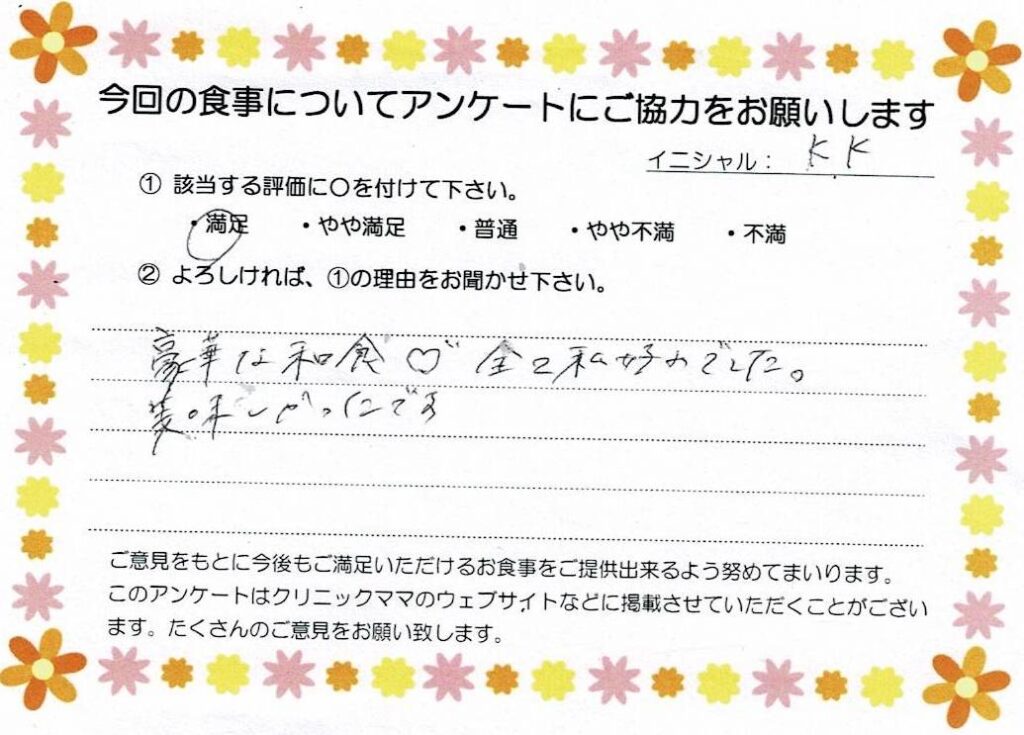 今回の食事についてアンケートにご協力をお願いします
イニシャル: KK
① 該当する評価に〇を付けて下さい。
・満足 ・やや満足 ・普通 ・やや不満 ・不満
② よろしければ、①の理由をお聞かせ下さい。
豪華な和食♡ 全て私好みでした。
美味しかったです
ご意見をもとに今後もご満足いただけるお食事をご提供出来るよう努めてまいります。
このアンケートはクリニックママのウェブサイトなどに掲載させていただくことがござい
ます。たくさんのご意見をお願い致します。